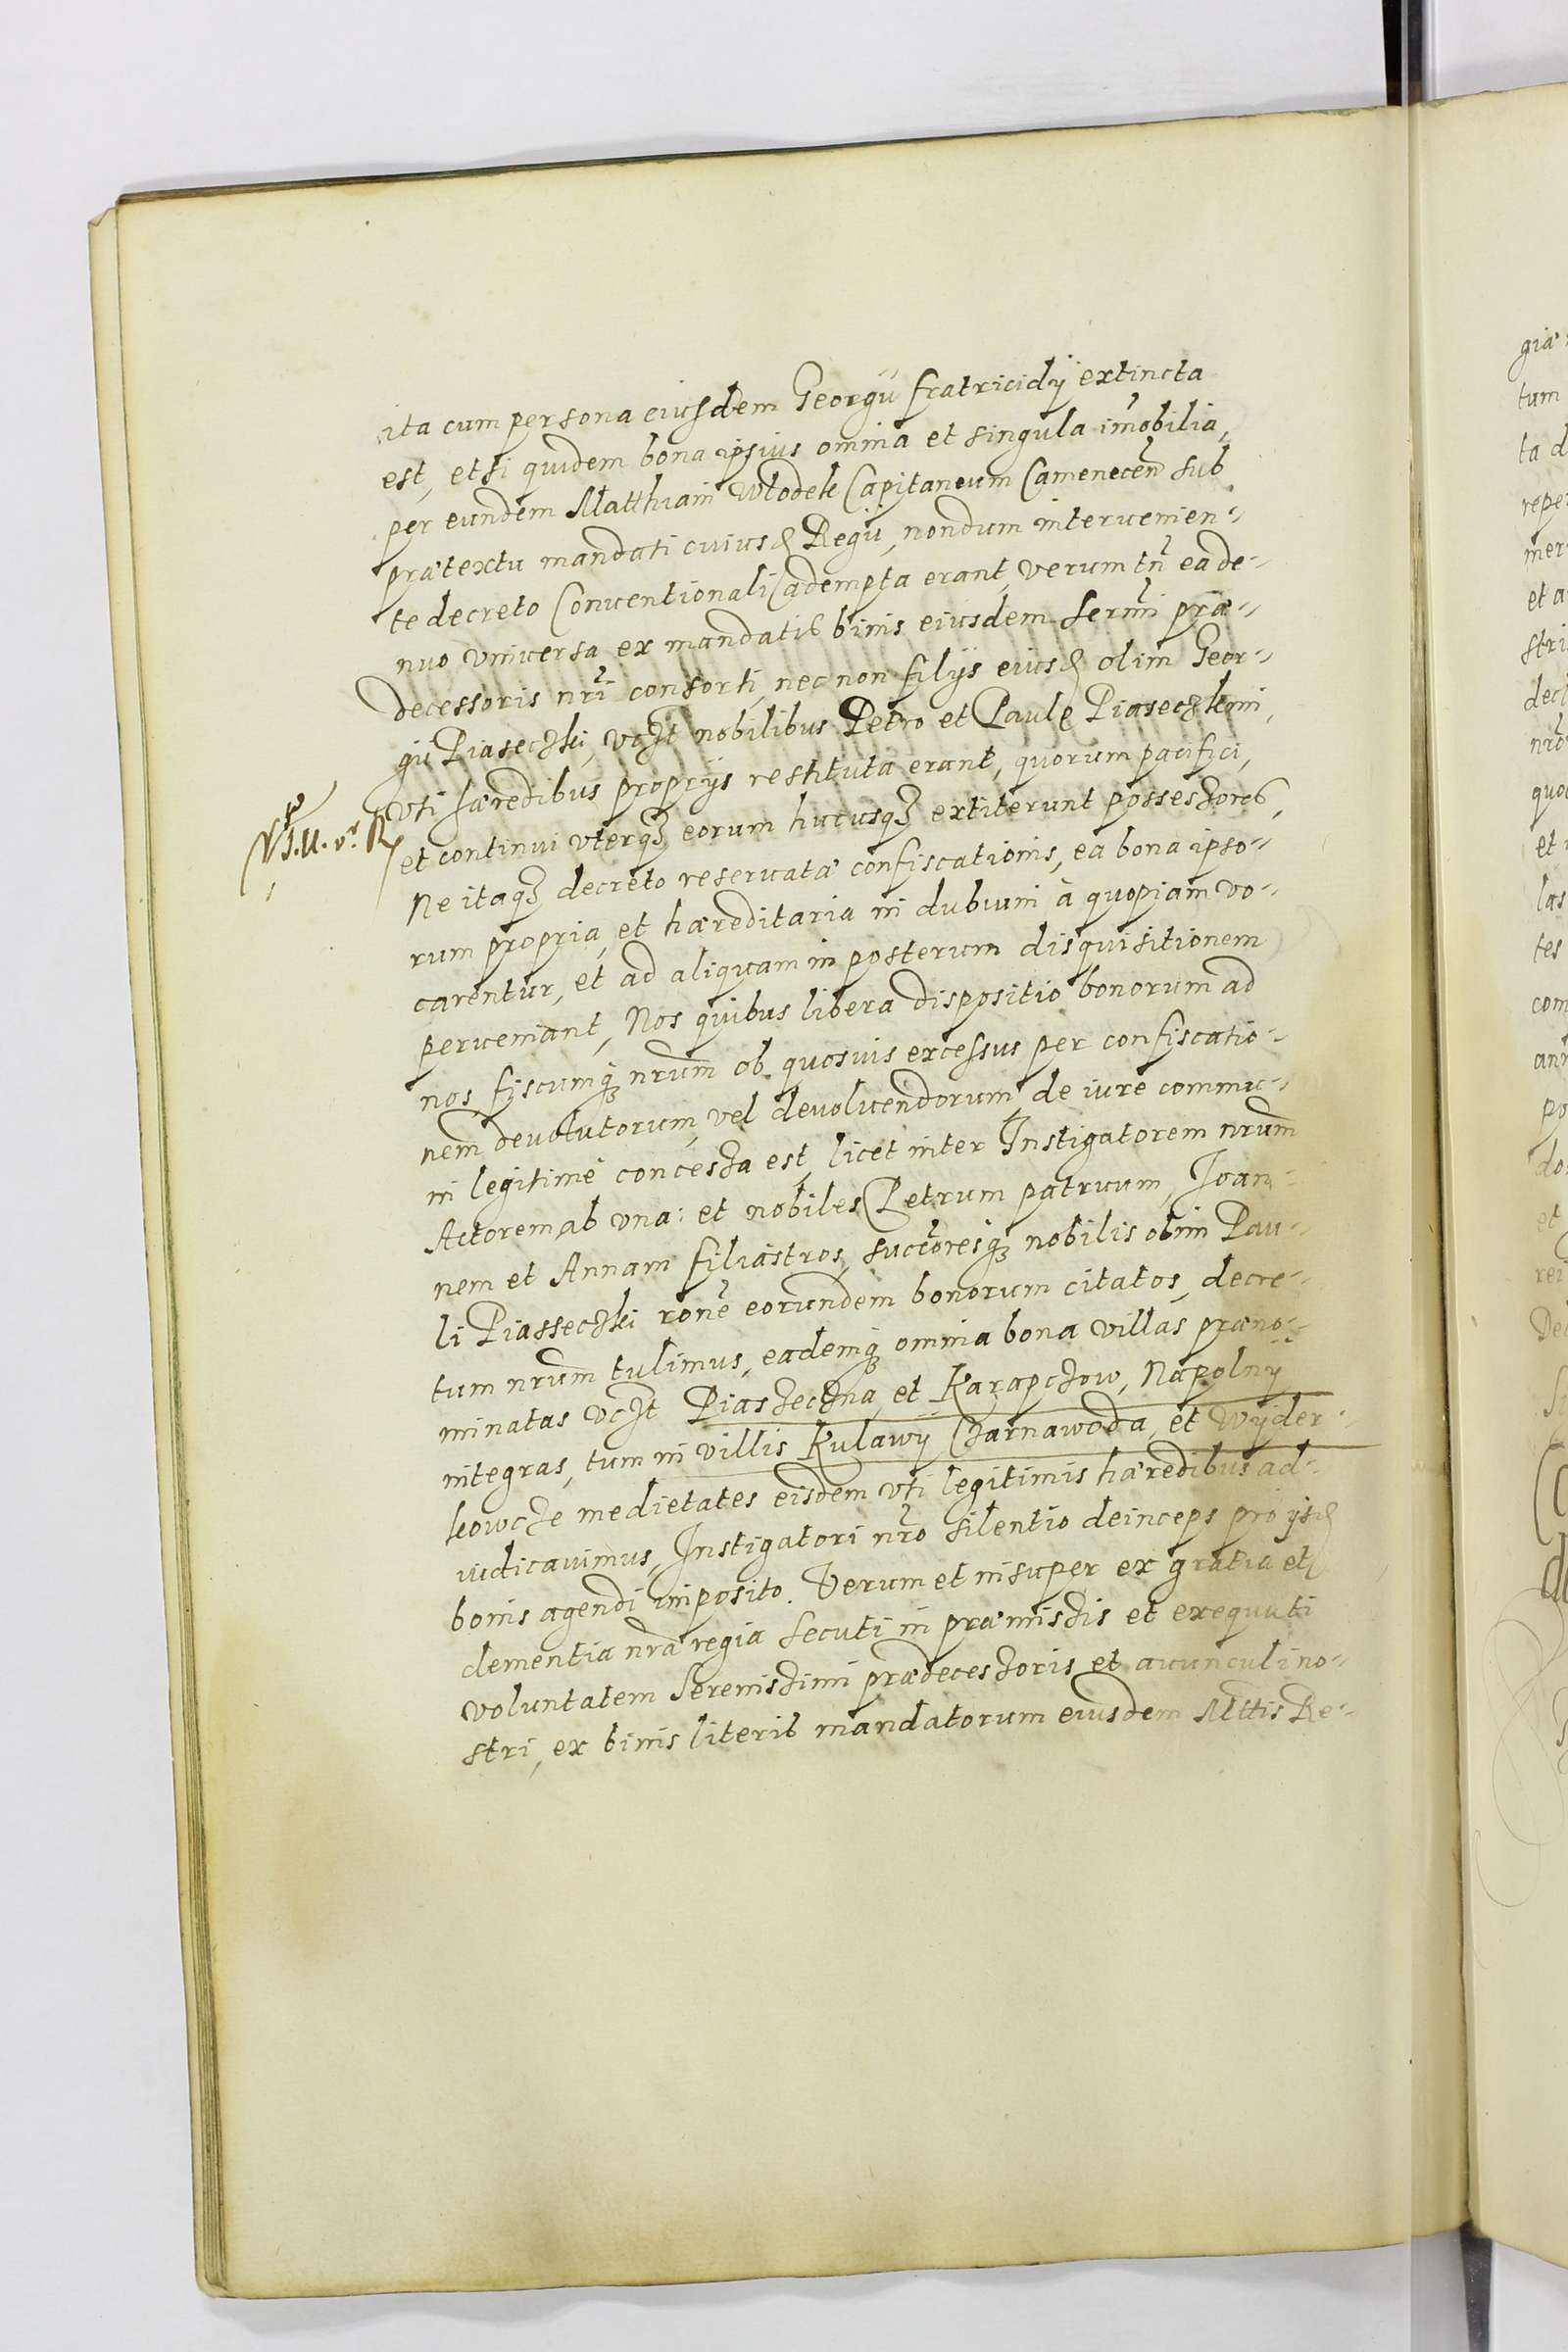 ita cum persona eiusdem Georgii fratricidÿ extincta
est, etsi quidem bona ipsius omnia et singula imobilia,
per eundem Matthiam Włodek Capitaneum Camenecen sub
prætextu mandati cuiusd Regii, nondum interuenien-
te decreto Conuentionali adempta erant, verum tn ea de-
nuo vniuersa ex mandatis binis eiusdem sermi præ-
decessoris nri consorti, nec non filÿs eiusd olim Geor-
gii Piaseczki, vczt nobilibus Petro et Paulo Piaseczkom,
vti hæredibus proprÿs restituta erant, quorum pacifici,
et continui vterqz eorum hucusqz extiterunt possessores,
Ne itaqz decreto reseruatæ confiscationis, ea bona ipso-
rum propria, et hæreditaria in dubium à quopiam vo-
carentur, et ad aliquam in posterum disquisitionem
perueniant, Nos quibus libera dispositio bonorum ad
nos fiscumqz nrum ob quosuis excessus per confiscatio-
nem deuolutorum, vel deuoluendorum, de iure commu-
ni legitimè concessa est, licet inter Instigatorem nrum
Actorem, ab vna: et nobiles Petrum patruum, Ioan-
nem et Annam filiastros, succoresqz nobilis olim Pau-
li Piasseczki rone eorundem bonorum citatos, decre-
tum nrum tulimus, eademqz omnia bona villas præno-
minatas vczt Piaszeczna et Karapczow, Napolnÿ
integras, tum in villis Kulawÿ Czarnawoda, et Wÿder-
kowcze medietates eisdem vti legitimis hæredibus ad-
iudicauimus, Instigatori nro silentio deinceps pro ÿsd
bonis agendi imposito. Verum et insuper ex gratia et
clementia nra regia secuti in præmissis et exequuti
voluntatem Serenissimi prædecessoris et auunculi no-
stri, ex binis literis mandatorum eiusdem Mttis Re-